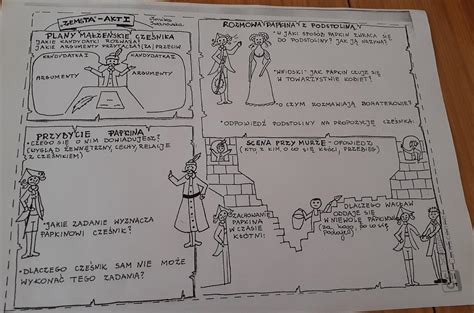 ZEMSTA - AKT I
Monika
Iwanowska
PLANY MAŁŻEŃSKIE CZEŚNIKA
JAKIE KANDYDATKI ROZWAŻA?
JAKIE ARGUMENTY PRZYTACZA (ZA) PRZECIW
KANDYDATKA I
KANDYDATKA II
ARGUMENTY
ARGUMENTY
ROZMOWA PAPKINA Z PODSTOLINĄ
• W JAKI SPOSÓB PAPKIN ZWRACA SIĘ
DO PODSTOLINY? JAK JĄ NAZYWA?
• WNIOSKI: JAK PAPKIN CZUJE SIĘ
W TOWARZYSTWIE KOBIET?
• O CZYM ROZMAWIAJĄ BOHATEROWIE?
• ODPOWIEDŹ PODSTOLINY NA PROPOZYCJĘ CZEŚNIKA.
PRZYBYCIE PAPKINA
• CZEGO SIĘ O NIM DOWIADUJESZ?
(WYGLĄD ZEWNĘTRZNY, CECHY, RELACJE
Z CZEŚNIKIEM)
• JAKIE ZADANIE WYZNACZA
PAPKINOWI CZEŚNIK?
• DLACZEGO CZEŚNIK SAM NIE MOŻE
WYKONAĆ TEGO ZADANIA?
SCENA PRZY MURZE - OPOWIEDZ
(KTO Z KIM, O CO SIĘ KŁÓCI, PRZEBIEG)
ZACHOWANIE
PAPKINA
W CZASIE
KŁÓTNI
DLACZEGO WACŁAW
ODDAJE SIĘ
W NIEWOLĘ PAPKINOWI?
(za kogo
podaje)